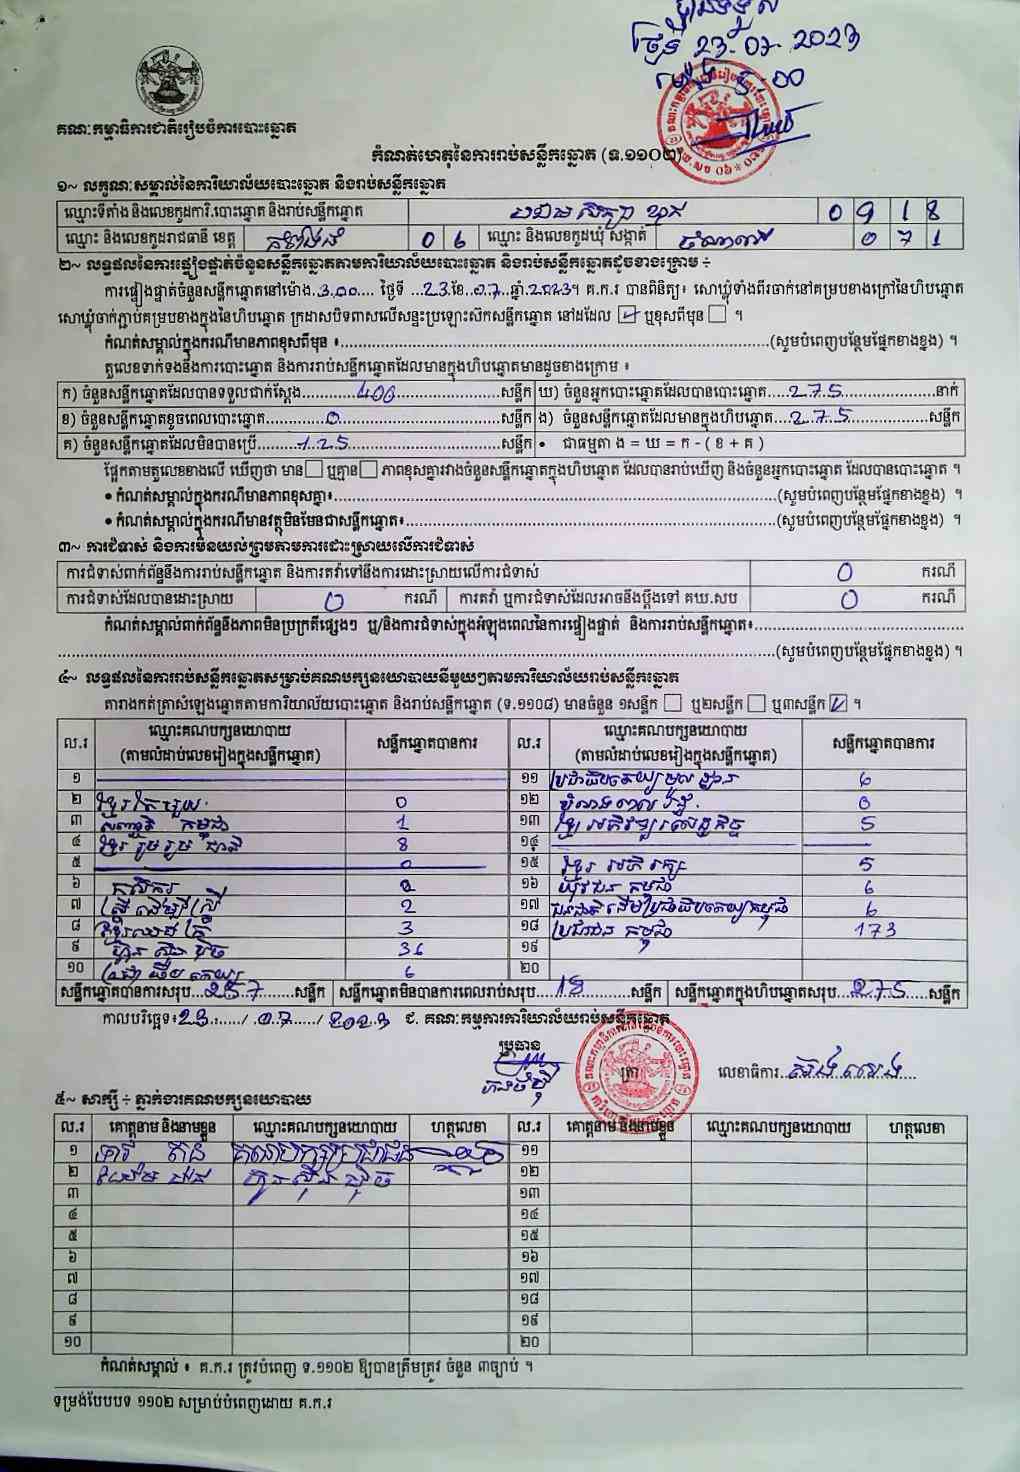 ថ្ងៃទី 23.07.2023
គណៈកម្មាធិការជាតិរៀបចំការបោះឆ្នោត
កំណត់ហេតុនៃការរាប់សន្លឹកឆ្នោត (ទ.១១០២)
១~ លក្ខណៈសម្គាល់នៃការិយាល័យបោះឆ្នោត និងរាប់សន្លឹកឆ្នោត
ឈ្មោះទីតាំង និងលេខកូដការិ.បោះឆ្នោត និងរាប់សន្លឹកឆ្នោត 0 9 1 8
ឈ្មោះ និងលេខកូដរាជធានី ខេត្ត កំពង់ធំ 0 6 ឈ្មោះ និងលេខកូដឃុំ សង្កាត់ 0 7 1
២~ លទ្ធផលនៃការផ្ទៀងផ្ទាត់ចំនួនសន្លឹកឆ្នោតតាមការិយាល័យបោះឆ្នោត និងរាប់សន្លឹកឆ្នោតដូចខាងក្រោម ÷
ការផ្ទៀងផ្ទាត់ចំនួនសន្លឹកឆ្នោតនៅម៉ោង..3.00.... ថ្ងៃទី ...23.ខែ..0.7...ឆ្នាំ.2023។ គ.ក.រ បានពិនិត្យ៖ សោឃ្លុំទាំងពីរចាក់នៅគម្របខាងក្រៅនៃហិបឆ្នោត
សោឃ្លុំចាក់ភ្ជាប់គម្របខាងក្នុងនៃហិបឆ្នោត ក្រដាសបិទពាសលើសន្ទះប្រឡោះសឹកសន្លឹកឆ្នោត នៅដដែល ☑ ឬខុសពីមុន ☐ ។
កំណត់សម្គាល់ក្នុងករណីមានភាពខុសពីមុន ៖......(សូមបំពេញបន្ថែមផ្នែកខាងខ្នង) ។
តួលេខទាក់ទងនឹងការបោះឆ្នោត និងការរាប់សន្លឹកឆ្នោតដែលមានក្នុងហិបឆ្នោតមានដូចខាងក្រោម ៖
ក) ចំនួនសន្លឹកឆ្នោតដែលបានទទួលជាក់ស្តែង......400......សន្លឹក ឃ) ចំនួនអ្នកបោះឆ្នោតដែលបានបោះឆ្នោត....275......នាក់
ខ) ចំនួនសន្លឹកឆ្នោតខូចពេលបោះឆ្នោត......0......សន្លឹក ង) ចំនួនសន្លឹកឆ្នោតដែលមានក្នុងហិបឆ្នោត...275......សន្លឹក
គ) ចំនួនសន្លឹកឆ្នោតដែលមិនបានប្រើ......125......សន្លឹក • ជាធម្មតា ង = ឃ = ក - ( ខ + គ )
ផ្អែកតាមតួលេខខាងលើ ឃើញថា មាន ☐ ឬគ្មាន ☐ ភាពខុសគ្នារវាងចំនួនសន្លឹកឆ្នោតក្នុងហិបឆ្នោត ដែលបានរាប់ឃើញ និងចំនួនអ្នកបោះឆ្នោត ដែលបានបោះឆ្នោត ។
• កំណត់សម្គាល់ក្នុងករណីមានភាពខុសគ្នា៖......(សូមបំពេញបន្ថែមផ្នែកខាងខ្នង) ។
• កំណត់សម្គាល់ក្នុងករណីមានវត្ថុមិនមែនជាសន្លឹកឆ្នោត៖......(សូមបំពេញបន្ថែមផ្នែកខាងខ្នង) ។
៣~ ការជំទាស់ និងការមិនយល់ព្រមតាមការដោះស្រាយលើការជំទាស់
ការជំទាស់ពាក់ព័ន្ធនឹងការរាប់សន្លឹកឆ្នោត និងការតវ៉ាទៅនឹងការដោះស្រាយលើការជំទាស់ 0 ករណី
ការជំទាស់ដែលបានដោះស្រាយ 0 ករណី ការតវ៉ា ឬការជំទាស់ដែលអាចនឹងប្តឹងទៅ គឃ.សប 0 ករណី
កំណត់សម្គាល់ពាក់ព័ន្ធនឹងភាពមិនប្រក្រតីផ្សេងៗ ឬ/និងការជំទាស់ក្នុងអំឡុងពេលនៃការផ្ទៀងផ្ទាត់ និងការរាប់សន្លឹកឆ្នោត៖......
......(សូមបំពេញបន្ថែមផ្នែកខាងខ្នង) ។
៤~ លទ្ធផលនៃការរាប់សន្លឹកឆ្នោតសម្រាប់គណបក្សនយោបាយនីមួយៗតាមការិយាល័យរាប់សន្លឹកឆ្នោត
តារាងកត់ត្រាសំឡេងឆ្នោតតាមការិយាល័យបោះឆ្នោត និងរាប់សន្លឹកឆ្នោត (ទ.១១០៨) មានចំនួន ១សន្លឹក ☐ ឬ២សន្លឹក ☐ ឬ៣សន្លឹក ☑ ។
ល.រ ឈ្មោះគណបក្សនយោបាយ (តាមលំដាប់លេខរៀងក្នុងសន្លឹកឆ្នោត) សន្លឹកឆ្នោតបានការ ល.រ ឈ្មោះគណបក្សនយោបាយ (តាមលំដាប់លេខរៀងក្នុងសន្លឹកឆ្នោត) សន្លឹកឆ្នោតបានការ
១ ១១ ប្រជាធិបតេយ្យមូលដ្ឋាន 6
២ ខ្មែរតែមួយ 0 ១២ 0
៣ កម្ពុជា 1 ១៣ ខ្មែរអភិវឌ្ឍន៍សេដ្ឋកិច្ច 5
៤ ខ្មែររួបរួមជាតិ 8 ១៤
៥ 0 ១៥ ខ្មែរអភិរក្ស 5
៦ កសិករ 2 ១៦ យុវជនកម្ពុជា 6
៧ ស្ត្រីដើម្បីស្ត្រី 2 ១៧ ជនជាតិដើមប្រជាធិបតេយ្យកម្ពុជា 6
៨ 3 ១៨ ប្រជាជនកម្ពុជា 173
៩ ហ៊្វុនស៊ិនប៉ិច 36 ១៩
១០ 6 ២០
សន្លឹកឆ្នោតបានការសរុប...257.......សន្លឹក សន្លឹកឆ្នោតមិនបានការពេលរាប់សរុប....18......សន្លឹក សន្លឹកឆ្នោតក្នុងហិបឆ្នោតសរុប...275.....សន្លឹក
កាលបរិច្ឆេទ៖23....../.07..../.2023 ៩. គណៈកម្មការការិយាល័យរាប់សន្លឹកឆ្នោត
ប្រធាន
ត្រា លេខាធិការ
៥~ សាក្សី ÷ ភ្នាក់ងារគណបក្សនយោបាយ
ល.រ គោត្តនាម និងនាមខ្លួន ឈ្មោះគណបក្សនយោបាយ ហត្ថលេខា ល.រ គោត្តនាម និងនាមខ្លួន ឈ្មោះគណបក្សនយោបាយ ហត្ថលេខា
១ គណបក្សប្រជាជន ១១
២ ហ៊្វុនស៊ិនប៉ិច ១២
៣ ១៣
៤ ១៤
៥ ១៥
៦ ១៦
៧ ១៧
៨ ១៨
៩ ១៩
១០ ២០
កំណត់សម្គាល់ ៖ គ.ក.រ ត្រូវបំពេញ ទ.១១០២ ឱ្យបានត្រឹមត្រូវ ចំនួន ៣ច្បាប់ ។
ទម្រង់បែបបទ ១១០២ សម្រាប់បំពេញដោយ គ.ក.រ